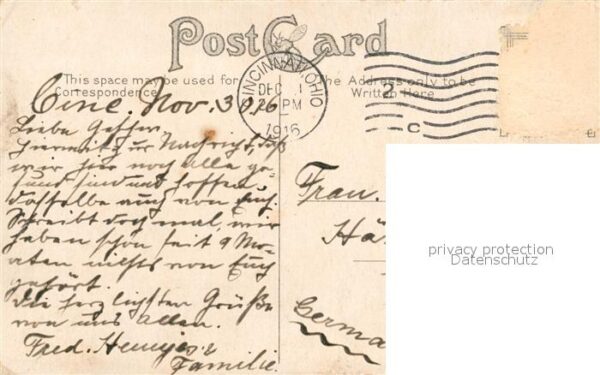 Post Card
This space may be used for Correspondence
The Address only to be Written Here
CINCINNATI, OHIO
DEC 1
PM
1916
2
C
Cinc. Nov. 30, 16
Liebe
Hiermit zur Nachricht, daß
wir hier noch alle ge-
sund sind und hoffen
dasselbe auch von Euch.
Schreibt doch mal, wir
haben schon seit 9 Mo-
naten nichts von Euch
gehört.
Die herzlichsten Grüße
von uns Allen.
Fred.
Familie.
Frau.
Hä
Germa
privacy protection
Datenschutz